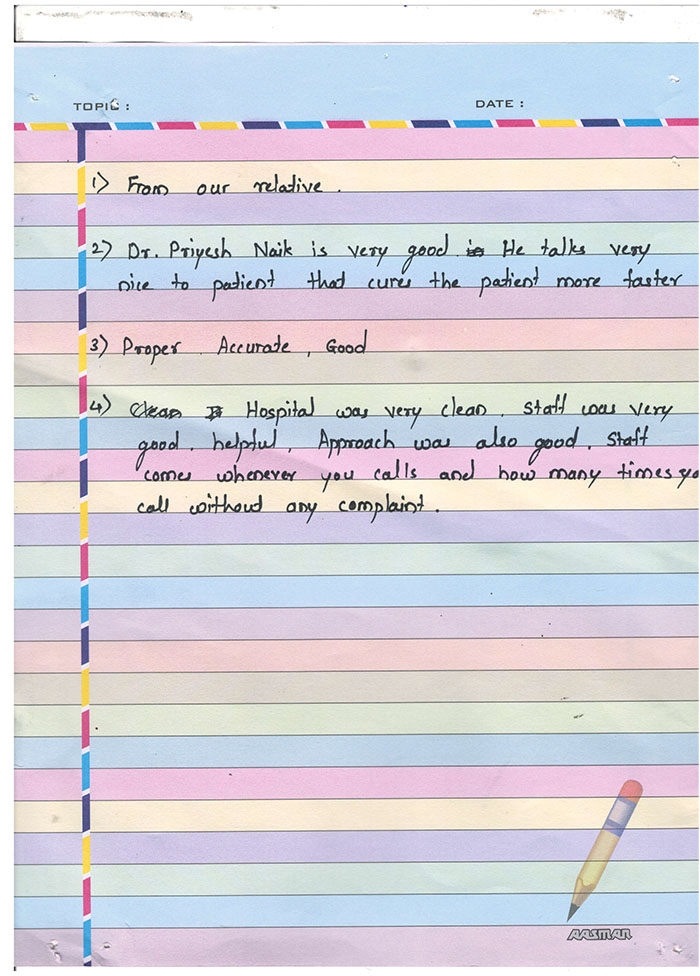 TOPIC :
DATE :
1) From our relative .
2) Dr. Priyesh Naik is very good is He talks very
nice to patient that cures the patient more faster
3) Proper . Accurate , Good
4) Clean It Hospital was very clean . Staff was very
good . helpful . Approach was also good . Staff
comes whenever you calls and how many times yo
call without any complaint .
AASMAN